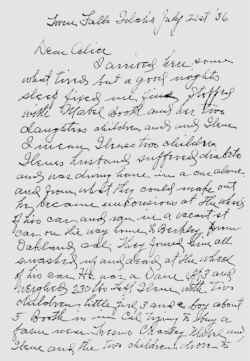 Twin Falls Idaho July 21st '36
Dear Celia
I arrived here some
what tired but a good nights
sleep fixed me fine Stopped
with Mabel Booth and her two
daughters children and Ilene
I mean Ilenes two children
Ilenes husband suffered diabetis
and was driving home in a car alone
and from what they could make out
he became unconsious at the wheel
of his car and ran in a vacant st
car on the way home to Berkley from
Oakland Cal. They found him all
smashed up and dead at the wheel
of his car. He was a Dane 6 ft 3 and
weighed 230 lbs left Ilene with two
children little girl 3 and a boy about
5 Booth is in Cal trying to buy a
farm near Fresno
Ilene and the two children down to